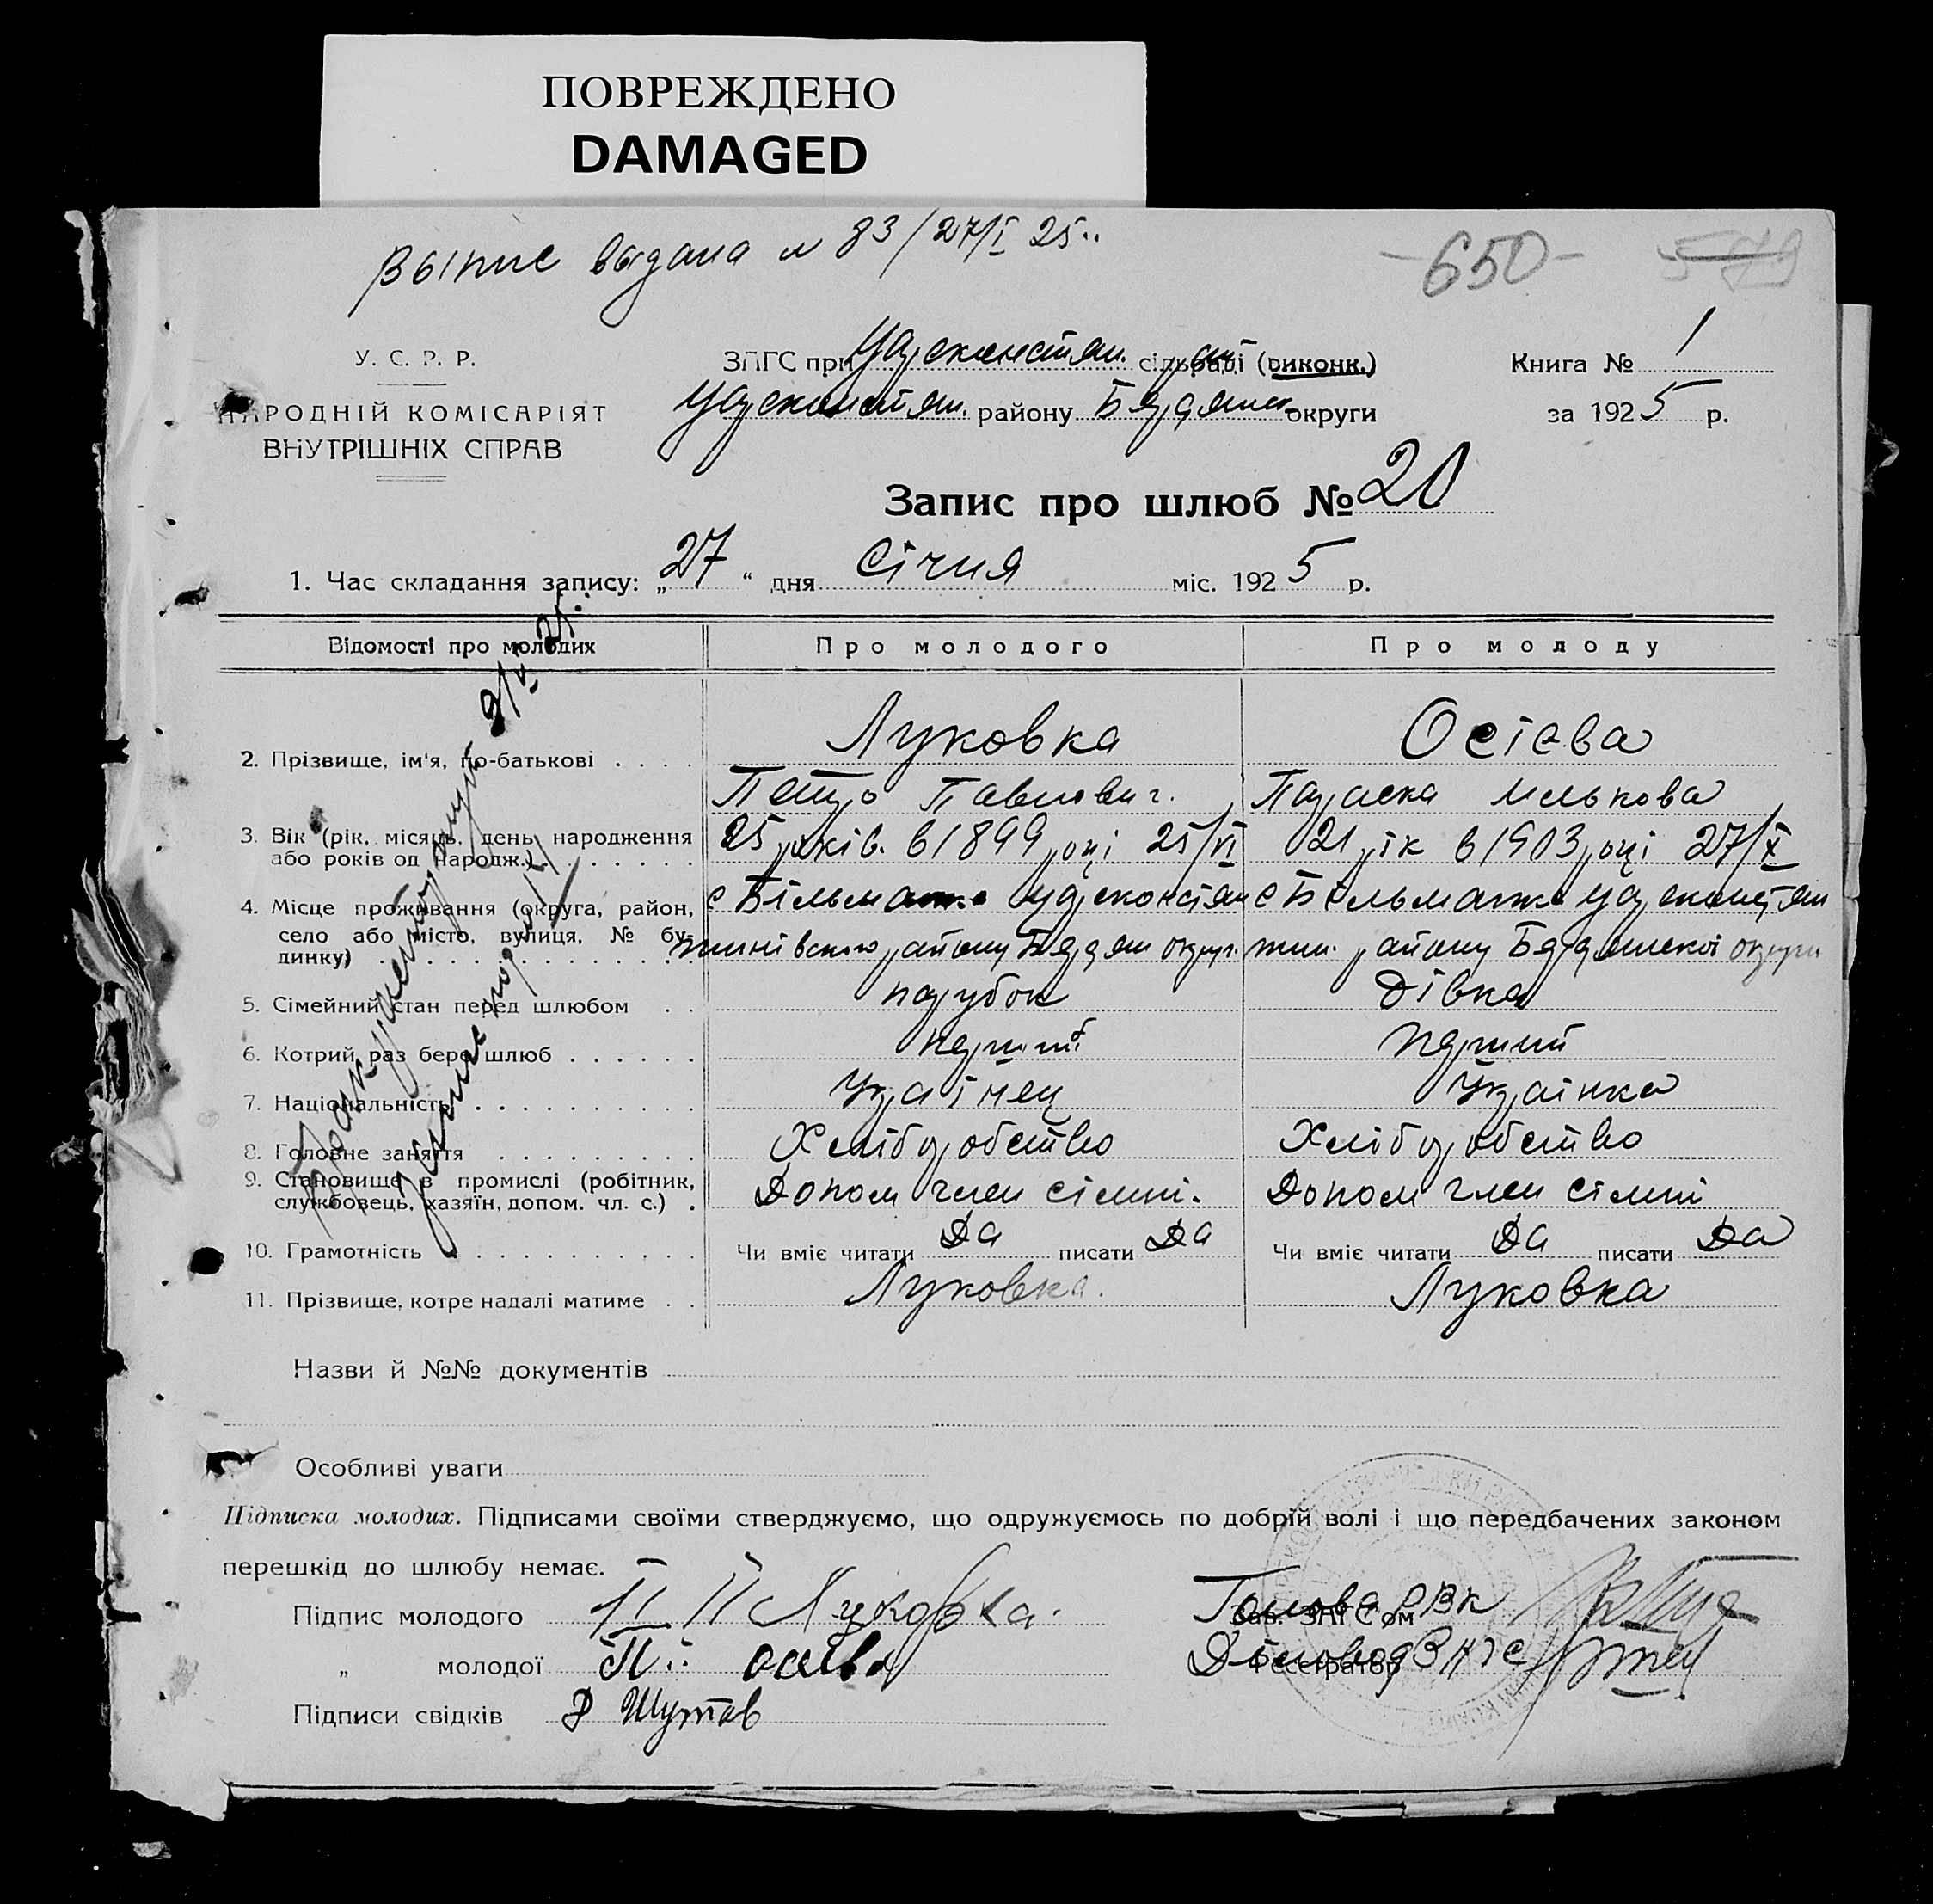 ПОВРЕЖДЕНО
DAMAGED
Выпис выдана № 83/27/I 25..
-650- 579
У. С. Р. Р.
НАРОДНІЙ КОМІСАРІЯТ
ВНУТРІШНІХ СПРАВ
ЗАГС при Цареконстян. сільраді (виконк.)
Цареконстян. району Бердянск округи
Книга № 1
за 1925 р.
Запис про шлюб № 20
1. Час складання запису: „27“ дня Січня міс. 1925 р.
Відомості про молодих
Про молодого
Про молоду
2. Прізвище, ім'я, по-батькові . . . .
Луковка
Осієва
Петро Павлович.
Параска Милькова
3. Вік (рік, місяць, день народження
або років од народж.) . . . . . . .
25 років. в 1899 році 25/VI
21 рік в 1903 році 27/X
4. Місце проживання (округа, район,
село або місто, вулиця, № бу-
динку) . . . . . . . . . . . .
с Більманка Цареконстян
тинівського району Бердян округ.
с Більманка Цареконстян
тин. району Бердянської округи
5. Сімейний стан перед шлюбом . .
парубок
Дівка
6. Котрий раз бере шлюб . . . . . .
перший
перший
7. Національність . . . . . . . . . .
Українец
Українка
8. Головне заняття . . . . . . . . .
Хліборобство
Хліборобство
9. Становище в промислі (робітник,
службовець, хазяїн, допом. чл. с.) .
Допом член сімії.
Допом член сімії
10. Грамотність . . . . . . . . . . .
Чи вміє читати Да писати Да
Чи вміє читати Да писати Да
11. Прізвище, котре надалі матиме . .
Луковка.
Луковка
Назви й №№ документів
Особливі уваги
Підписка молодих. Підписами своїми стверджуємо, що одружуємось по добрій волі і що передбачених законом
перешкід до шлюбу немає.
Підпис молодого П П Луковка.
„ молодої П.. осієва
Підписи свідків Шутов
Зав. ЗАГС'ом
Голова РВК
Реєстратор
Діловод ЗАГС